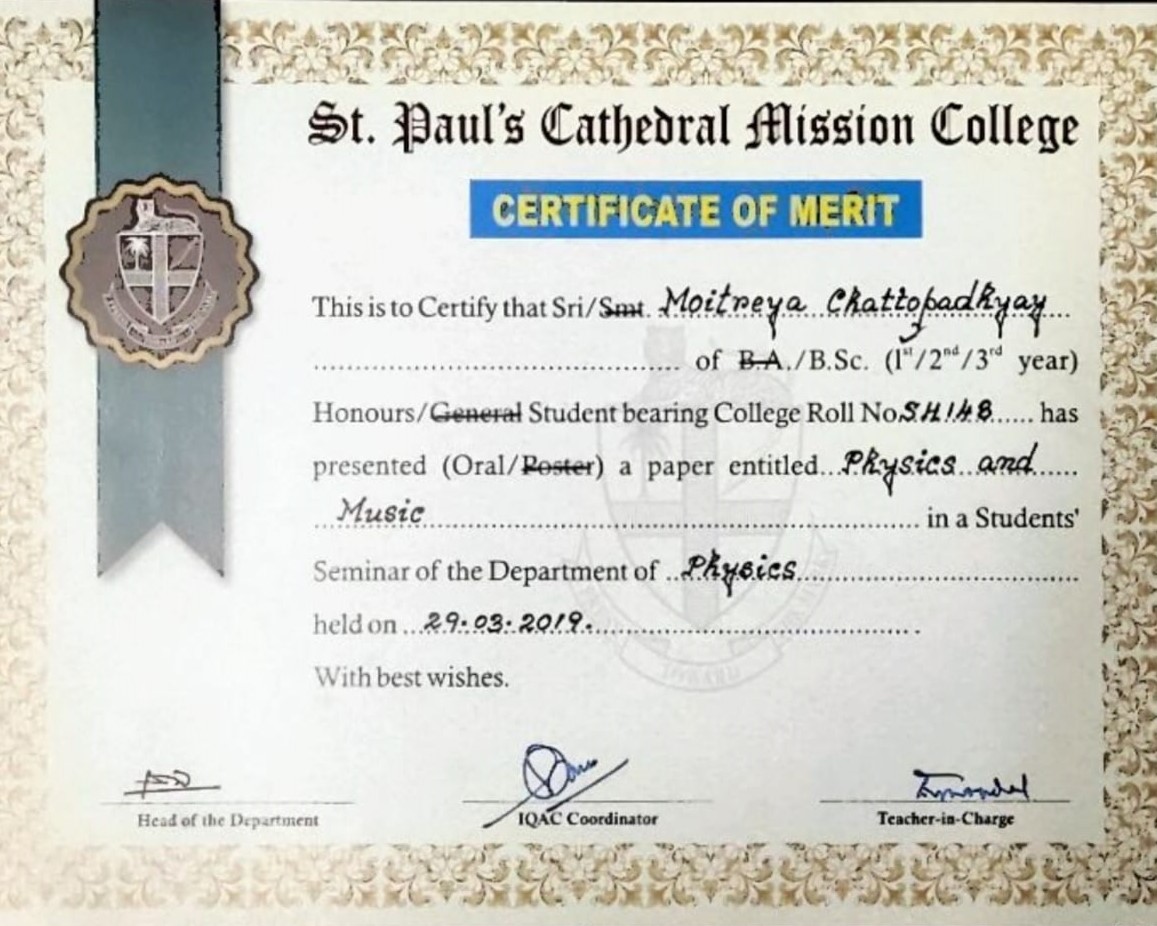 St. Paul's Cathedral Mission College
CERTIFICATE OF MERIT
This is to Certify that Sri/Smt. Moitreya Chattopadhyay
of B.A./B.Sc. (1st/2nd/3rd year)
Honours/General Student bearing College Roll No. SH148 has
presented (Oral/Poster) a paper entitled Physics and
Music in a Students'
Seminar of the Department of Physics
held on 29.03.2019.
With best wishes.
Head of the Department IQAC Coordinator Teacher-in-Charge